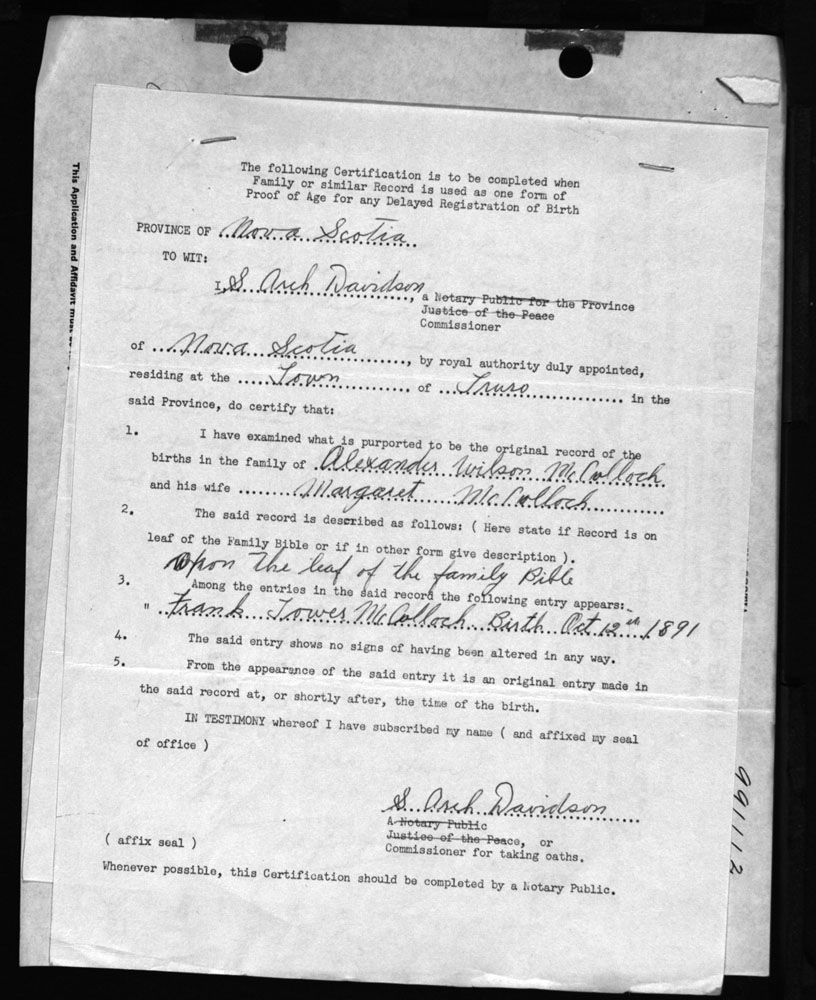 The following Certification is to be completed when
Family or similar Record is used as one form of
Proof of Age for any Delayed Registration of Birth
PROVINCE OF Nova Scotia
TO WIT:
I, S. Arch Davidson, a Notary Public for the Province
Justice of the Peace
Commissioner
of Nova Scotia, by royal authority duly appointed,
residing at the Town of Truro in the
said Province, do certify that:
1. I have examined what is purported to be the original record of the
births in the family of Alexander Wilson McCulloch
and his wife Margaret McCulloch
2. The said record is described as follows: ( Here state if Record is on
leaf of the Family Bible or if in other form give description ).
Upon the leaf of the family Bible
3. Among the entries in the said record the following entry appears:
" Frank Tower McCulloch Birth Oct 12th 1891
4. The said entry shows no signs of having been altered in any way.
5. From the appearance of the said entry it is an original entry made in
the said record at, or shortly after, the time of the birth.
IN TESTIMONY whereof I have subscribed my name ( and affixed my seal
of office )
S. Arch Davidson
A Notary Public
Justice of the Peace, or
Commissioner for taking oaths.
( affix seal )
Whenever possible, this Certification should be completed by a Notary Public.
This Application and Affidavit must
991112